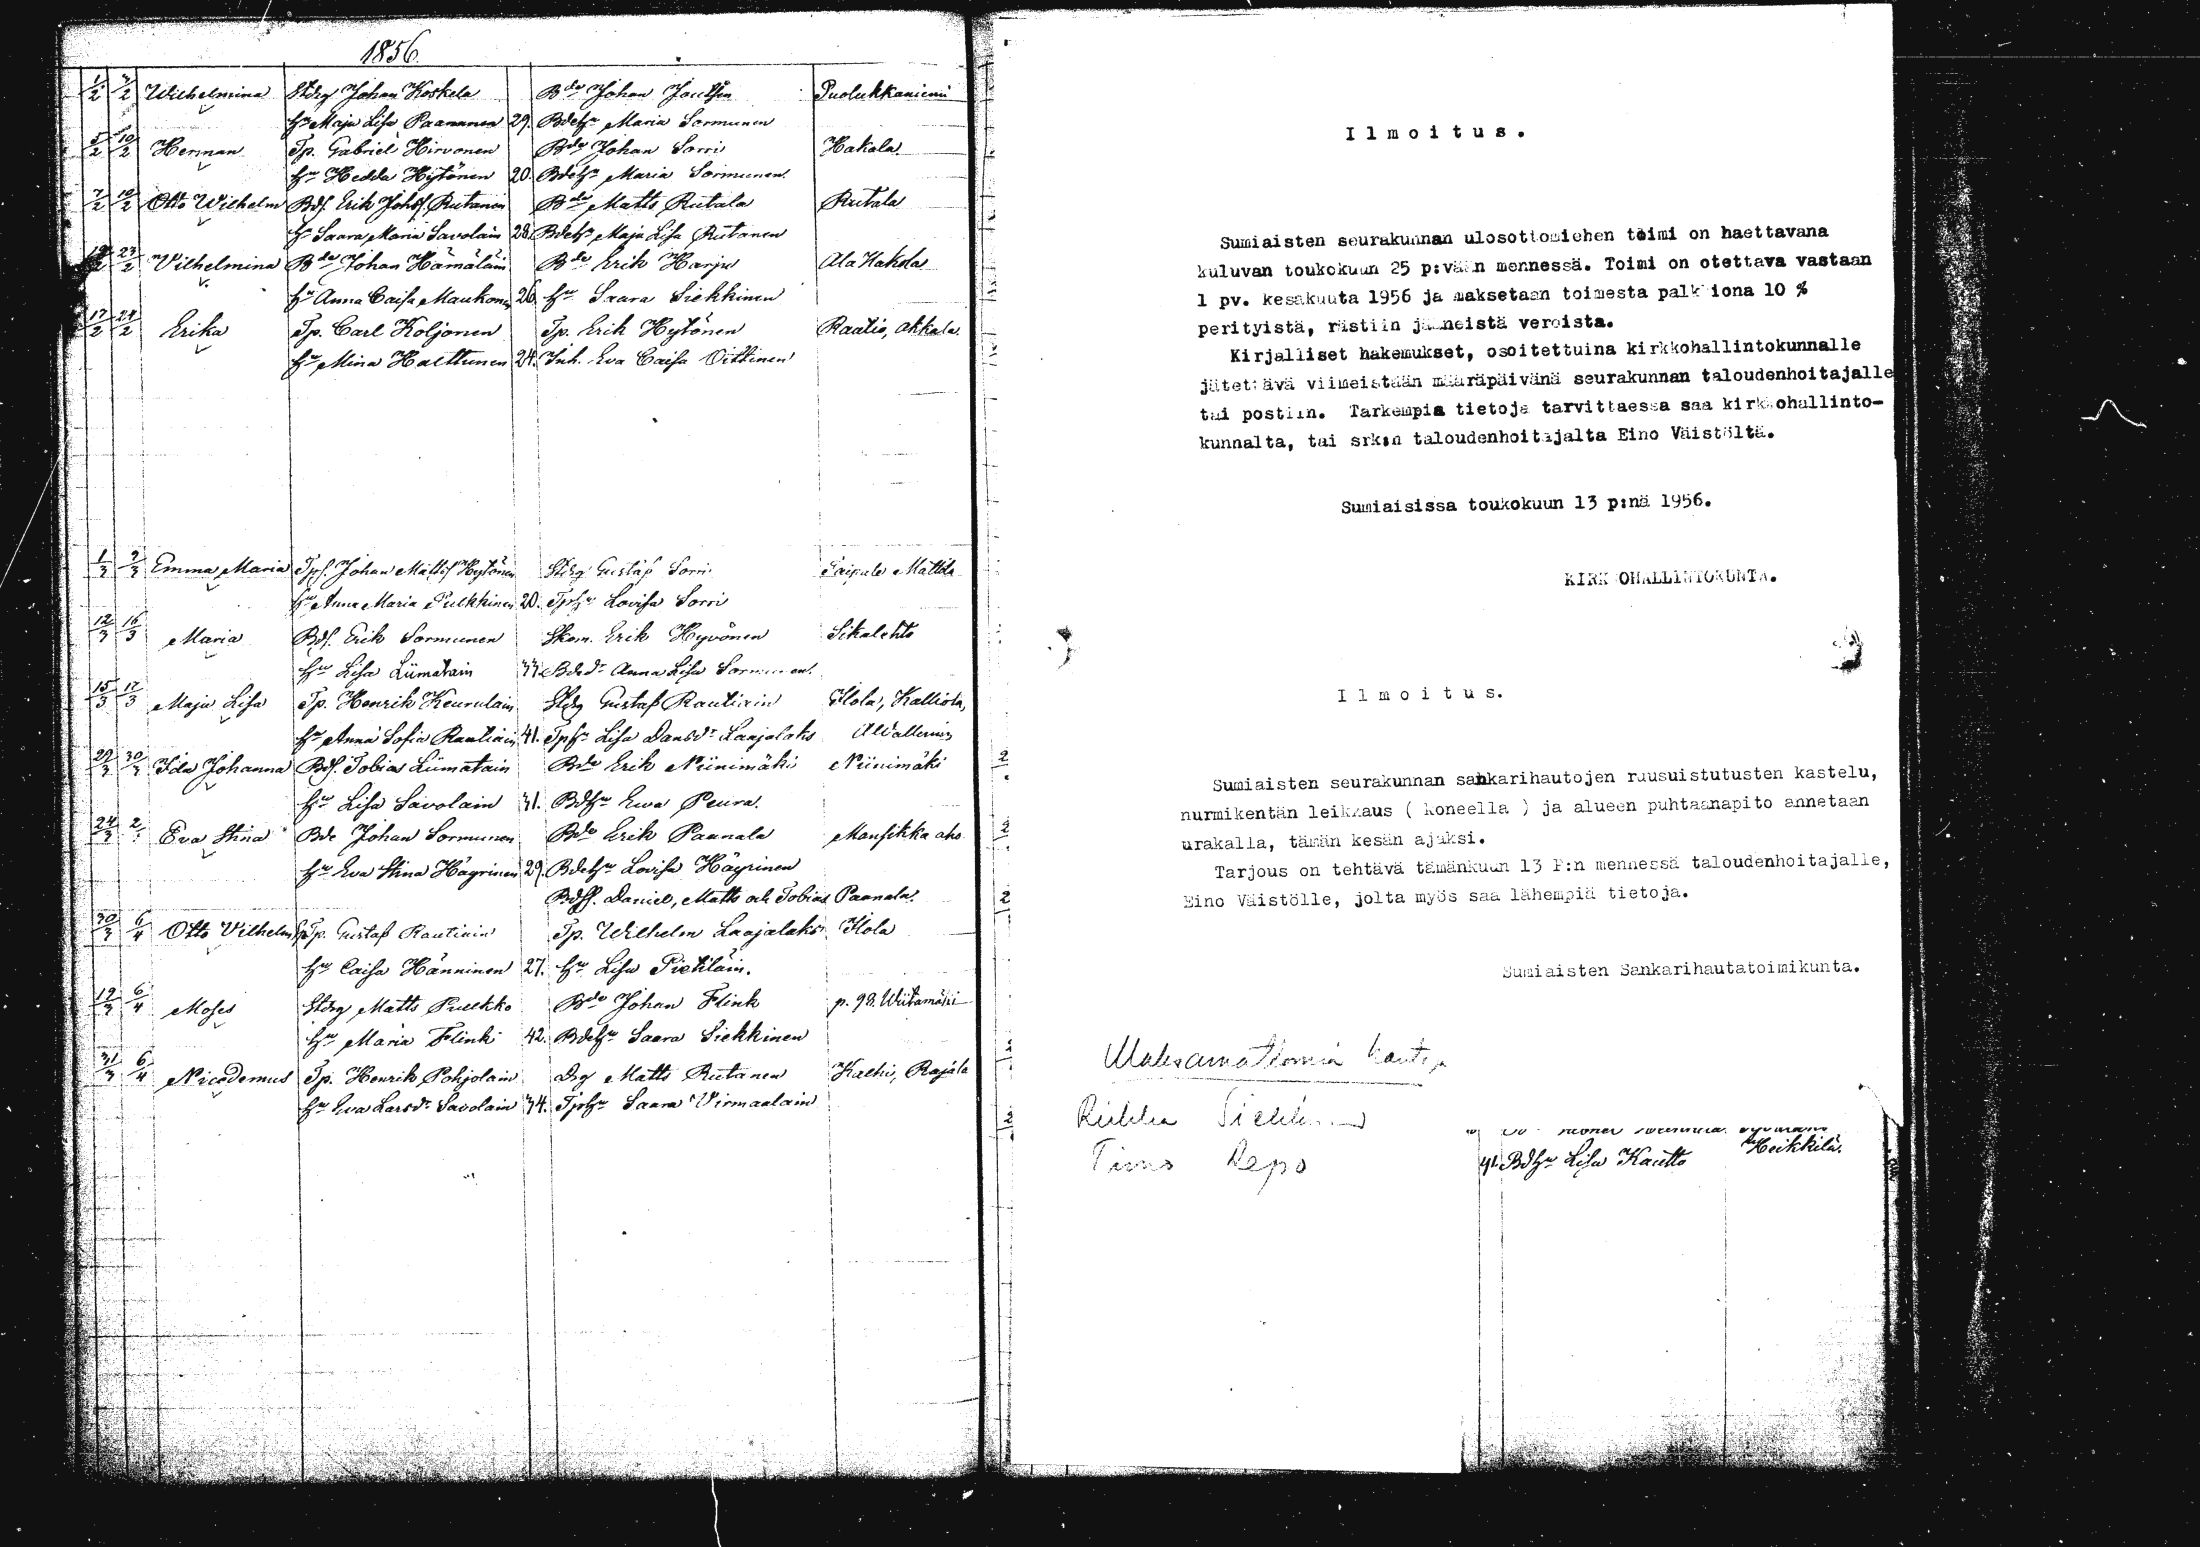 1856.
1/2 3/2 Wilhelmina Stdrg Johan Koskela Bde Johan Jautsen Puolukkaniemi
hu Maja Lisa Paananen 29. Bdehu Maria Sormunen
5/2 10/2 Herman Tp. Gabriel Hirvonen Bde Johan Sorri Hakala
hu Hedda Hytönen 20. Bdehu Maria Sormunen
7/2 10/2 Otto Wilhelm Bds. Erik Johss. Rutanen Bde Matts Rutala Rutala
hu Saara Maria Savolain 28. Bdehu Maja Lisa Rutanen
23/2 Vilhelmina Bde Johan Hämäläin Bde Erik Harju Ala Hakola
hu Anna Caisa Maukonen 26. hu Saara Siekkinen
17/2 24/2 Erika Tp. Carl Koljonen Tp. Erik Hytönen Raatio, Akkala
hu Mina Halttunen 24. Inh. Eva Caisa Oittinen
1/3 9/3 Emma Maria Tps. Johan Mattss Hytönen Stdrg Gustaf Sorri Taipale Mattila
hu Anna Maria Pulkkinen 20. Tphu Lovisa Sorri
12/3 16/3 Maria Bds. Erik Sormunen Skom. Erik Hyvönen Sikalehto
hu Lisa Liimatain 33. Bdedr Anna Lisa Sormunen.
15/3 17/3 Maja Lisa Tp. Henrik Keurulain Stdrg Gustaf Rautiain Ilola, Kalliola,
hu Anna Sofia Rautiain 41. Tphu Lisa Dansdr Laajalaks
29/3 30/3 Ida Johanna Bds. Tobias Liimatain Bde Erik Niinimäki Niinimäki
hu Lisa Savolain 31. Bdhu Ewa Peura.
24/3 Eva Stina Bde Johan Sormunen Bde Erik Paanala Mansikka aho
hu Eva Stina Häyrinen 29. Bdehu Lovisa Häyrinen
Bdss. Daniel, Matts och Tobias Paanala.
30/3 6/4 Otto Vilhelm Tp. Gustaf Rautiain Tp. Wilhelm Laajalaks Ilola
hu Caisa Hänninen 27. hu Lisa Pietiläin.
19/3 6/4 Moses Stdrg Matts Pulkko Bde Johan Flink p. 98. Wiitamäki
hu Maria Flink 42. Bdehu Saara Siekkinen
31/3 6/4 Nicodemus Tp. Henrik Pohjolain Drg Matts Rutanen Kalhi, Rajala
hu Eva Larsdr Savolain 34. Tphu Saara Virmaalain
Ilmoitus.
Sumiaisten seurakunnan ulosottomiehen toimi on haettavana
kuluvan toukokuun 25 p:vään mennessä. Toimi on otettava vastaan
1 pv. kesäkuuta 1956 ja maksetaan toimesta palkkiona 10 %
perityistä, rästiin jääneistä veroista.
Kirjalliset hakemukset, osoitettuina kirkkohallintokunnalle
jätettävä viimeistään määräpäivänä seurakunnan taloudenhoitajalle
tai postiin. Tarkempia tietoja tarvittaessa saa kirkkohallinto-
kunnalta, tai srk:n taloudenhoitajalta Eino Väistöltä.
Sumiaisissa toukokuun 13 p:nä 1956.
KIRKKOHALLINTOKUNTA.
Ilmoitus.
Sumiaisten seurakunnan sankarihautojen ruusuistutusten kastelu,
nurmikentän leikkaus ( koneella ) ja alueen puhtaanapito annetaan
urakalla, tämän kesän ajaksi.
Tarjous on tehtävä tämänkuun 13 P:n mennessä taloudenhoitajalle,
Eino Väistölle, jolta myös saa lähempiä tietoja.
Sumiaisten Sankarihautatoimikunta.
Maksamattomia hautoja
Riikka
Timo Repo
41. Bdhu Lisa Kautto Heikkilä.